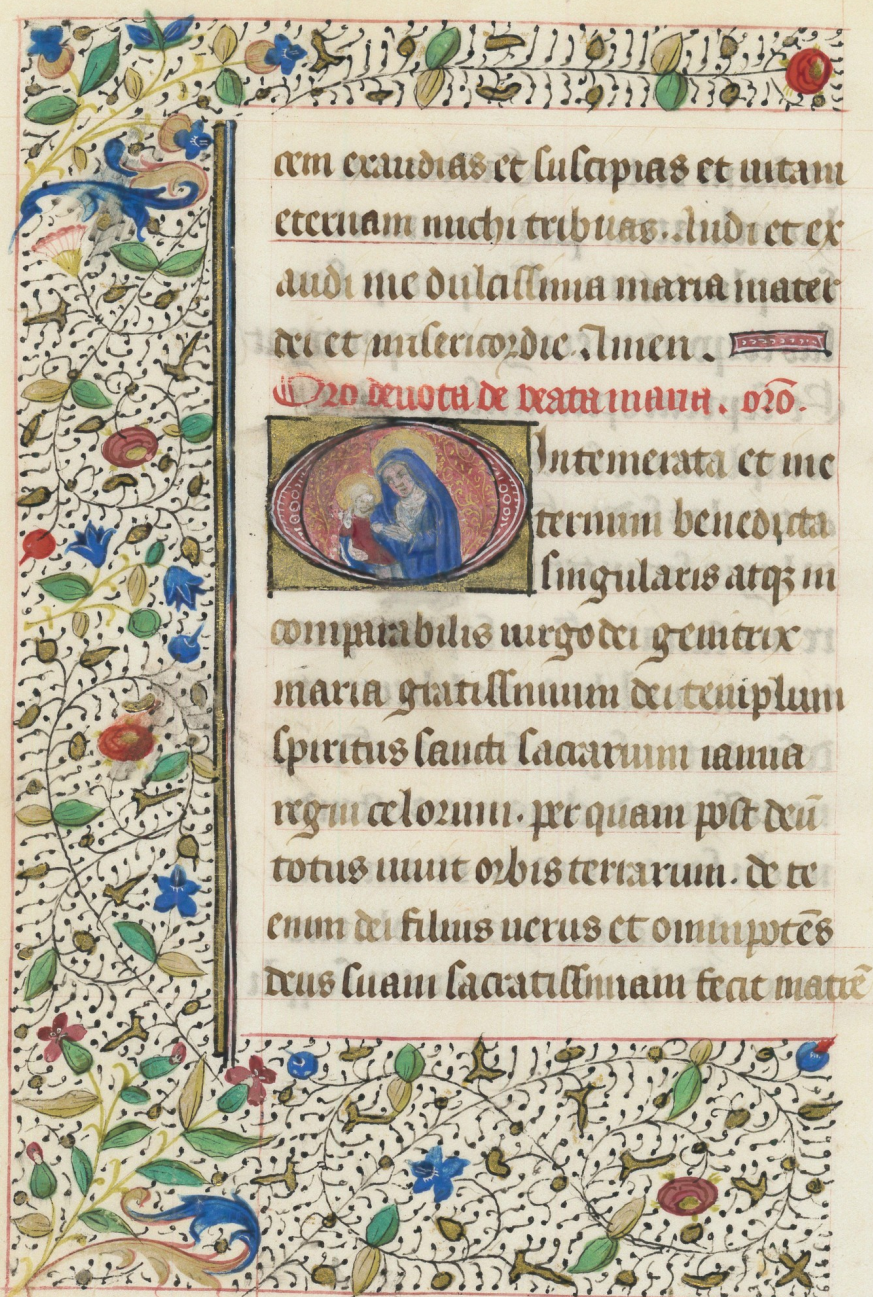 cem exaudias et suscipias et uitam
eternam michi tribuas. Audi et ex
audi me dulcissima maria mater
dei et misericordie. Amen.
Oro deuota de beata maria. orō.
Intemerata et in e
ternum benedicta
singularis atqꝫ in
comparabilis uirgo dei genitrix
maria gratissimum dei templum
spiritus sancti sacrarium ianua
regni celorum. per quam post deū
totus uiuit orbis terrarum. de te
enim dei filius uerus et omnipotēs
deus suam sacratissimam fecit matrē